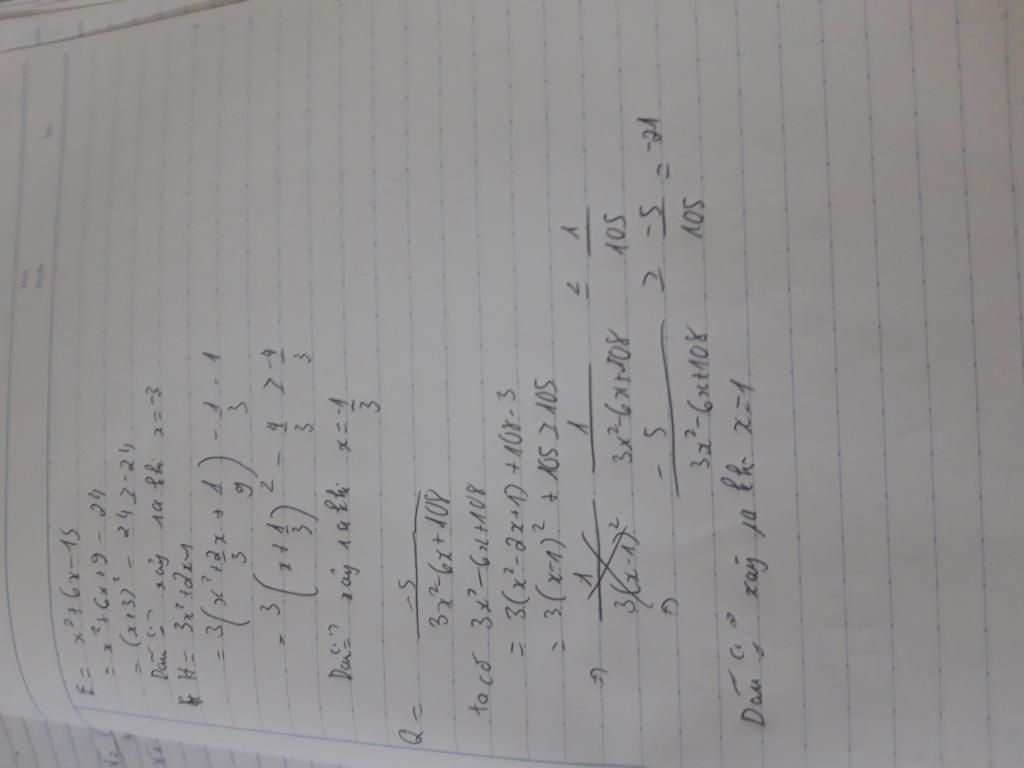 E = x² + 6x - 15
= x² + 6x + 9 - 24
= (x+3)² - 24 ≥ -24
Dấu "=" xảy ra khi x = 3
H = 3x² + 2x - 1
= 3(x² + 2/3x + 1/9) - 1/3 - 1
= 3(x + 1/3)² - 4/3 ≥ -4/3
Dấu "=" xảy ra khi x = -1/3
Q = -5/(3x² - 6x + 108)
ta có 3x² - 6x + 108
= 3(x² - 2x + 1) + 108 - 3
= 3(x-1)² + 105 ≥ 105
=> 1/(3x² - 6x + 108) ≤ 1/105
=> -5/(3x² - 6x + 108) ≥ -5/105 = -21
Dấu "=" xảy ra khi x = 1